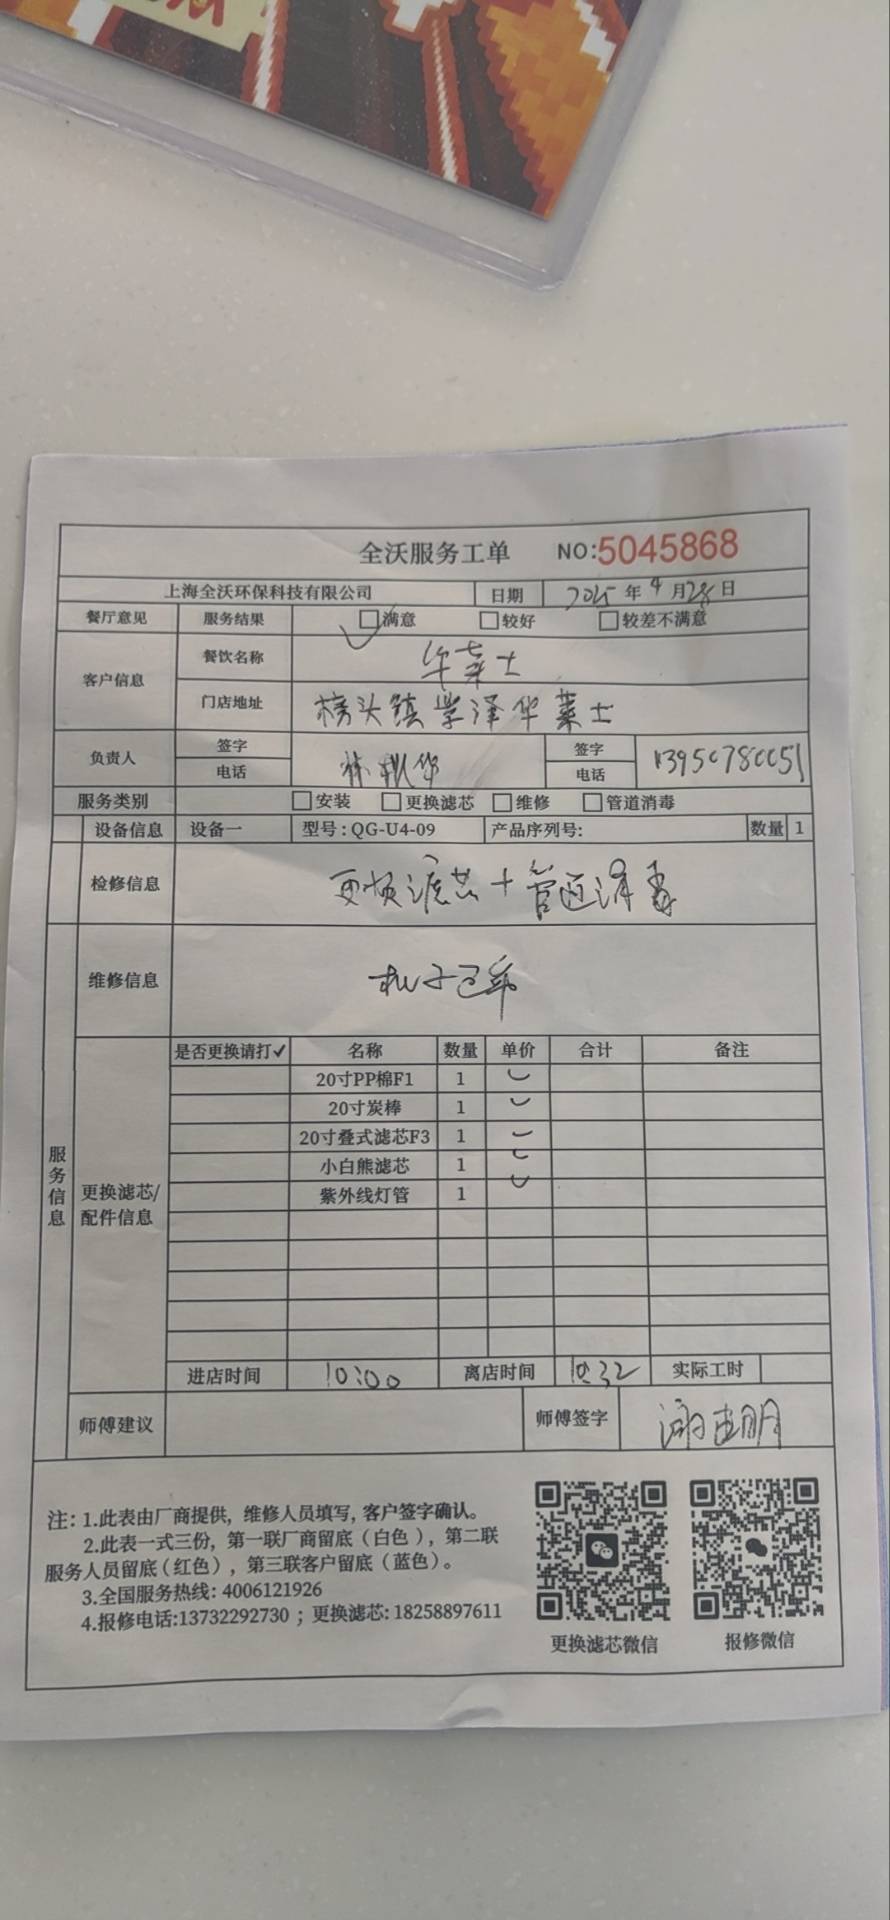 全沃服务工单 NO:5045868
上海全沃环保科技有限公司 日期 2025年4月28日
餐厅意见 服务结果 满意 较好 较差不满意
客户信息 餐饮名称 华莱士
门店地址 榜头镇学泽华莱士
负责人 签字 电话 林 华 签字 电话 13950780051
服务类别 安装 更换滤芯 维修 管道消毒
设备信息 设备一 型号:QG-U4-09 产品序列号: 数量 1
检修信息 更换滤芯+管道消毒
维修信息
服务信息
更换滤芯/配件信息
是否更换请打✓ 名称 数量 单价 合计 备注
20寸PP棉F1 1
20寸炭棒 1
20寸叠式滤芯F3 1
小白熊滤芯 1
紫外线灯管 1
进店时间 10:00 离店时间 10:32 实际工时
师傅建议 师傅签字
注: 1.此表由厂商提供, 维修人员填写, 客户签字确认。
2.此表一式三份, 第一联厂商留底(白色), 第二联
服务人员留底(红色), 第三联客户留底(蓝色)。
3.全国服务热线: 4006121926
4.报修电话:13732292730 ; 更换滤芯: 18258897611
更换滤芯微信 报修微信